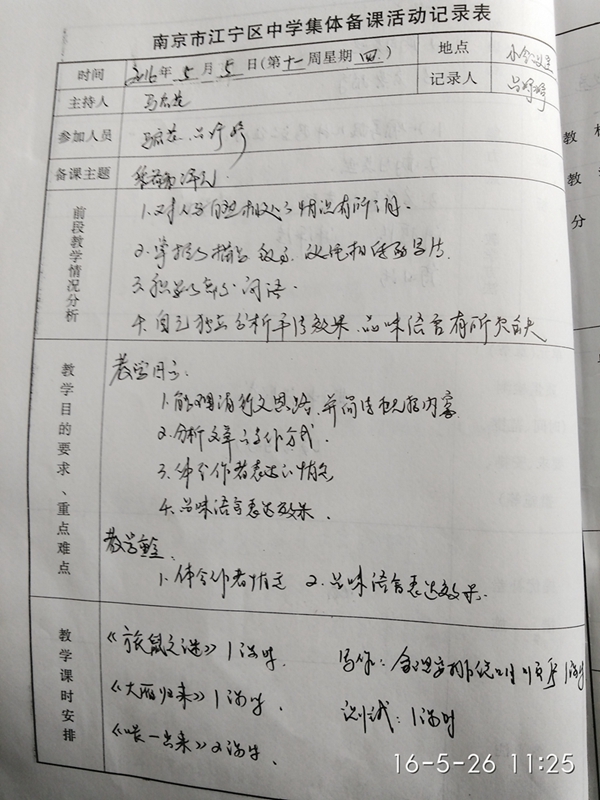 南京市江宁区中学集体备课活动记录表
时间 2016年5月5日(第十一周星期四) 地点 小会议室
主持人 记录人
参加人员
备课主题
前段教学情况分析
1.对人与自然相处之情况有所了解.
2.掌握了描写
3.积累了部分词语.
4.自己独立分析手法效果、品味语言有所欠缺
教学目的要求、重点难点
教学目标:
1.能理清行文思路,并简洁概括内容
2.分析文章写作方式.
3.体会作者表达的情感
4.品味语言表达效果.
教学重点
1.体会作者情感 2.品味语言表达效果.
教学课时安排
1课时. 写作:合理安排 顺序 1课时
《大雁归来》1课时. 测试:1课时
2课时.
16-5-26 11:25
教
教
分